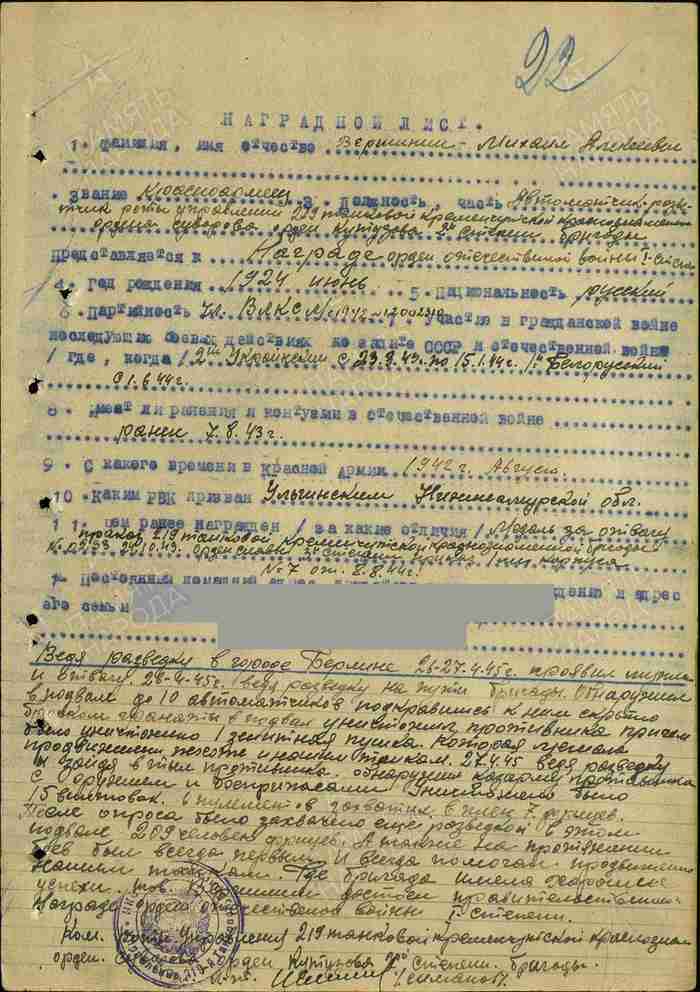 22
НАГРАДНОЙ ЛИСТ.
1. Фамилия, имя отчество Вершинин Михаил Алексеевич
Звание Красноармеец 3. Должность, часть Автоматчик разве-
дчик роты управления 219 танковой Кременчугской краснознаменной
ордена Суворова орден Кутузова 2й степени бригады
Представляется к Награде орден отечественной войны I-степ
4. Год рождения 1924 июнь 5. Национальность русский
6. Партийность Чл. ВЛКСМ 7. Участие в гражданской войне
последующих боевых действиях по защите СССР и отечественной войне
/где, когда/ 2й Украинский с 23.9.43г. по 15.1.44г. 1й Белорусский
с 1.6.44г.
8. Имеет ли ранения и контузии в отечественной войне
ранен 7.8.43г.
9. С какого времени в Красной Армии 1942г. Август.
10. Каким РВК призван Ульчинским Нижнеамурской обл.
11. Чем ранее награжден /за какие отличия/ Медаль за отвагу
приказ 219 танковой Кременчугской краснознаменной бригады
24.10.43. орден славы 3й степени приказ корпуса
№ 7 от 2.8.44г.
Постоянный домашний адрес и адрес
его семьи
Ведя разведку в городе Берлине 26-27.4.45г. проявил
и отвагу. 26.4.45г. ведя разведку на пути бригады. Обнаружил
в подвале до 10 автоматчиков подкравшись к ним скрытно
броском гранаты в подвал уничтожил противника причем
было уничтожено 1 зенитная пушка. Которая мешала
продвижении пехоте и нашим танкам. 27.4.45 ведя разведку
и зайдя в тыл противника. обнаружил казарму противника
с оружием и боеприпасами Уничтожено было
15 винтовок. 6 пулеметов захватил в плен 7 фрицев.
После опроса было захвачено еще разведкой в этом
подвале 209 человек фрицев. А также на протяжении
боев был всегда первым И всегда помогал продвижению
нашим танкам. Где бригада имела хорошие
успехи. тов. Вершинин достоин правительственной
Награде ордена отечественной войны I-степени.
Ком. роты Управления 219 танковой Кременчугской краснознам
орден. Суворова орден Кутузова 2й степени. бригады.